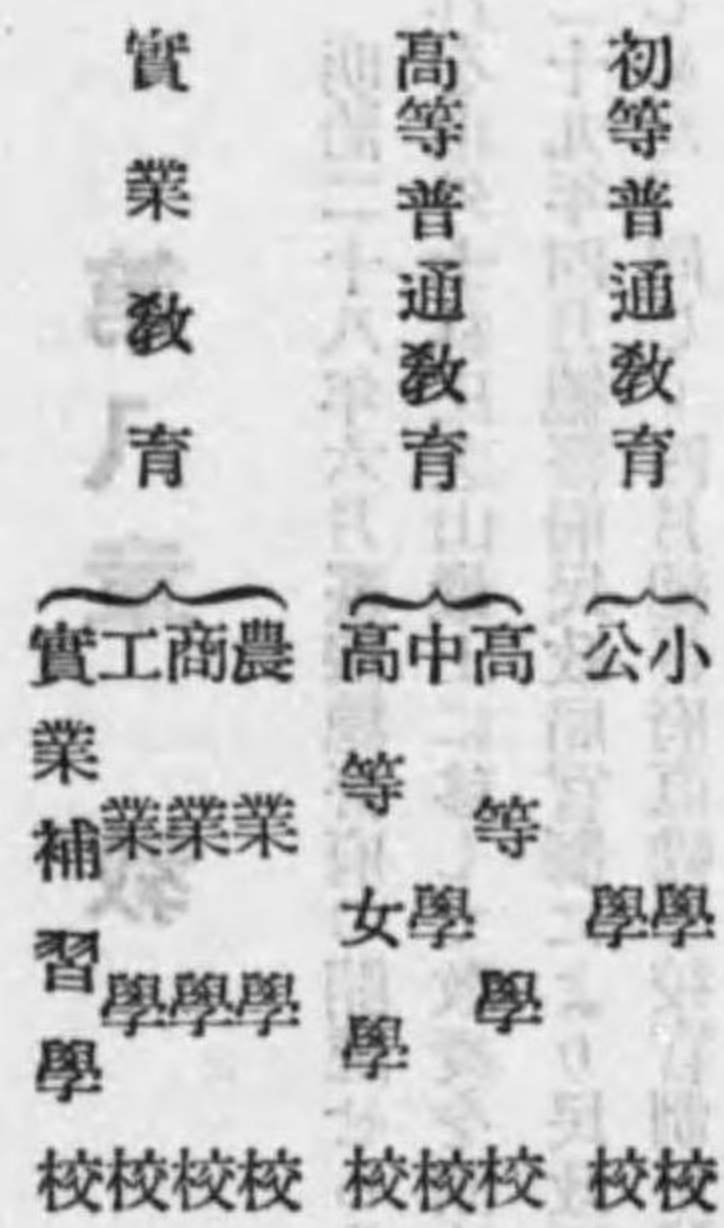 初等普通敎育
小學校
公學校
高等普通敎育
高等學校
中學校
高等女學校
實業敎育
農業學校
商業學校
工業學校
實業補習學校